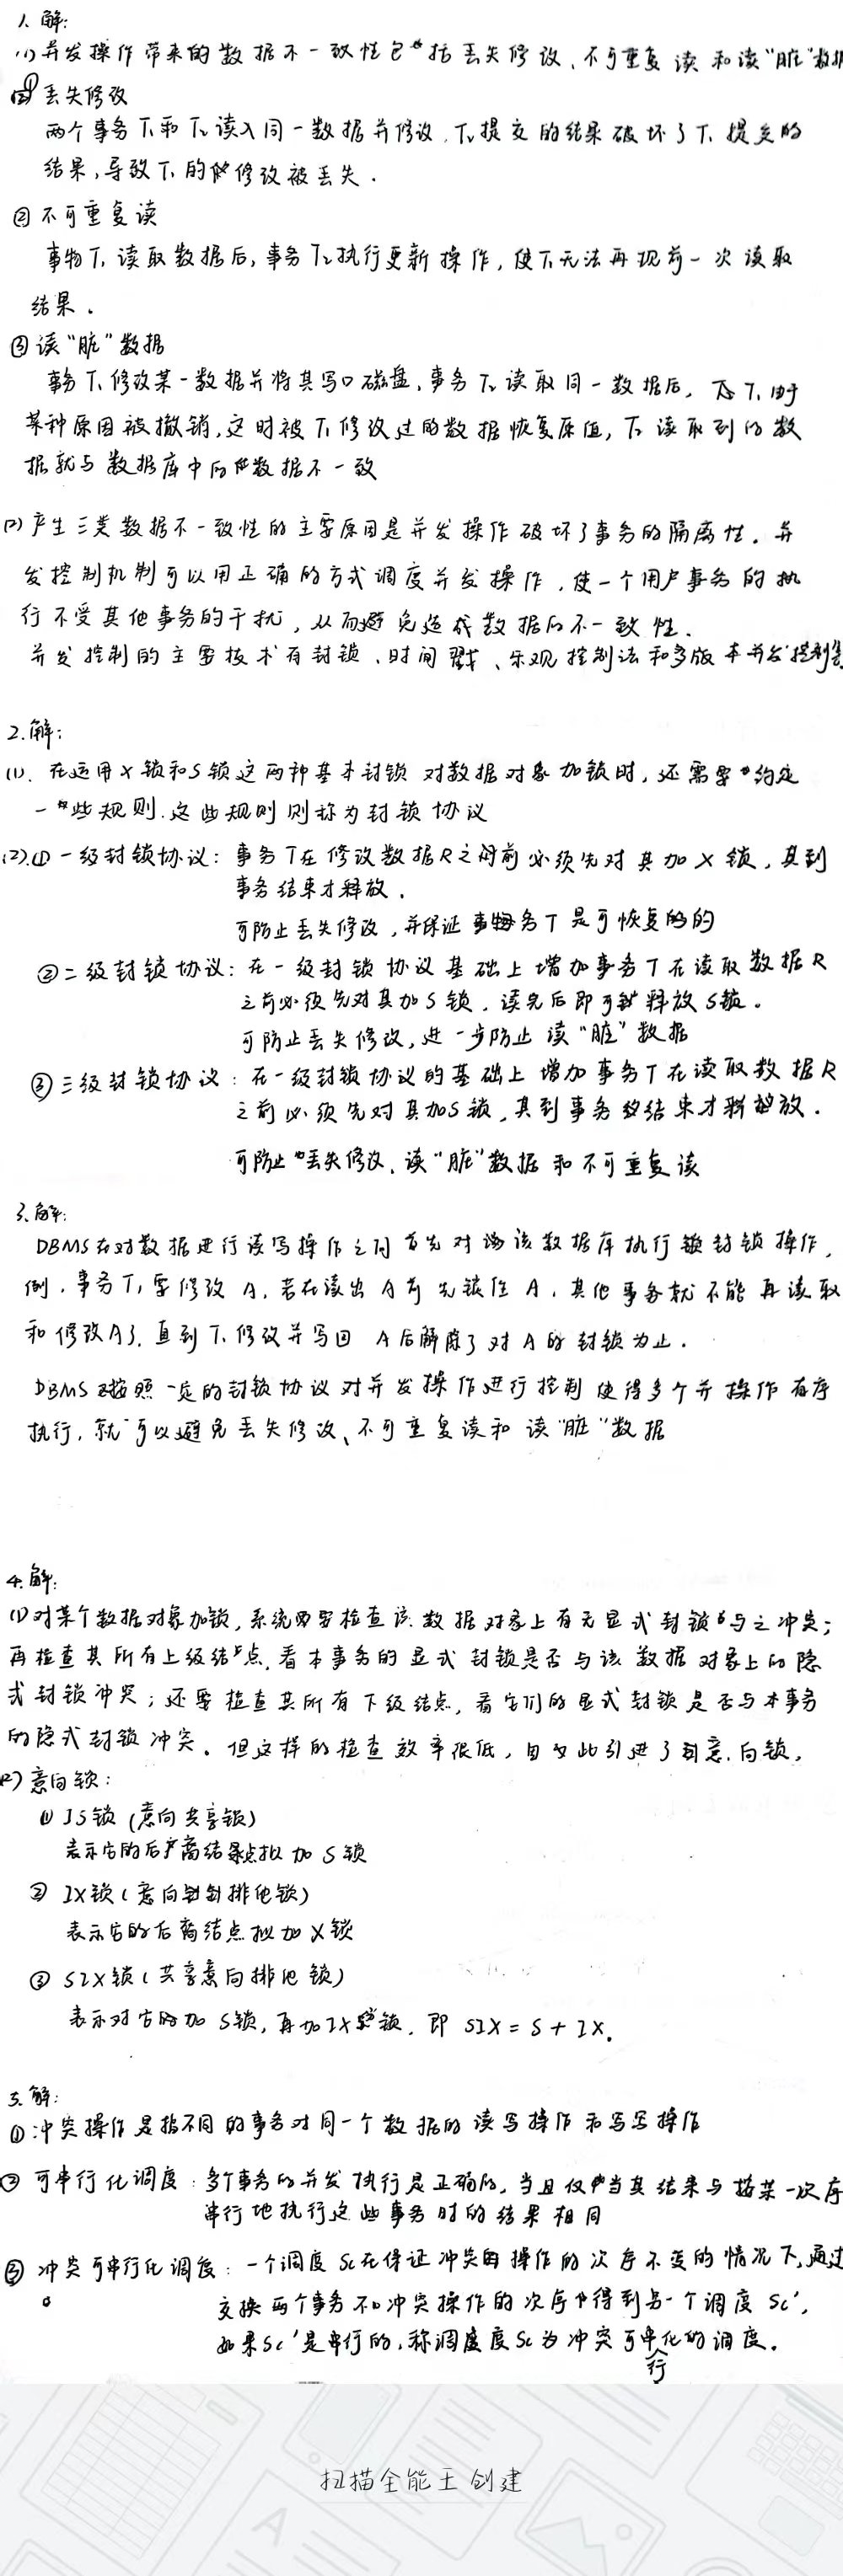 1. 解:
(1) 并发操作带来的数据不一致性包括丢失修改、不可重复读和读“脏”数据
① 丢失修改
两个事务T₁和T₂读入同一数据并修改,T₂提交的结果破坏了T₁提交的
结果,导致T₁的修改被丢失.
② 不可重复读
事物T₁读取数据后,事务T₂执行更新操作,使T₁无法再现前一次读取
结果.
③ 读“脏”数据
事务T₁修改某一数据并将其写回磁盘,事务T₂读取同一数据后,T₁由于
某种原因被撤销,这时被T₁修改过的数据恢复原值,T₂读取到的数
据就与数据库中的数据不一致
(2) 产生三类数据不一致性的主要原因是并发操作破坏了事务的隔离性.并
发控制机制可以用正确的方式调度并发操作,使一个用户事务的执
行不受其他事务的干扰,从而避免造成数据的不一致性.
并发控制的主要技术有封锁、时间戳、乐观控制法和多版本并发控制等
2.解:
(1). 在运用X锁和S锁这两种基本封锁对数据对象加锁时,还需要约定
一些规则.这些规则则称为封锁协议
(2).① 一级封锁协议: 事务T在修改数据R之前必须先对其加X锁,直到
事务结束才释放.
可防止丢失修改,并保证事务T是可恢复的的
② 二级封锁协议: 在一级封锁协议基础上增加事务T在读取数据R
之前必须先对其加S锁,读完后即可释放S锁.
可防止丢失修改,进一步防止读“脏”数据
③ 三级封锁协议: 在一级封锁协议的基础上增加事务T在读取数据R
之前必须先对其加S锁,直到事务结束才释放.
可防止丢失修改、读“脏”数据和不可重复读
3.解:
DBMS在对数据进行读写操作之前首先对该数据库执行封锁操作,
例.事务T₁要修改A,若在读出A前先锁住A.其他事务就不能再读取
和修改A了.直到T₁修改并写回A后解除了对A的封锁为止.
DBMS按照一定的封锁协议对并发操作进行控制使得多个并操作有序
执行,就可以避免丢失修改、不可重复读和读“脏”数据
4.解:
(1)对某个数据对象加锁,系统要检查该数据对象上有无显式封锁与之冲突;
再检查其所有上级结点,看本事务的显式封锁是否与该数据对象上的隐
式封锁冲突;还要检查其所有下级结点,看它们的显式封锁是否与本事务
的隐式封锁冲突.但这样的检查效率很低,因此引进了意向锁,
(2)意向锁:
① IS锁(意向共享锁)
表示它的后裔结点拟加S锁
② IX锁(意向排他锁)
表示它的后裔结点拟加X锁
③ SIX锁(共享意向排他锁)
表示对它加S锁,再加IX锁.即 SIX=S+IX.
5.解:
① 冲突操作是指不同的事务对同一个数据的读写操作和写写操作
② 可串行化调度: 多个事务的并发执行是正确的,当且仅当其结果与按某一次序
串行地执行这些事务时的结果相同
③ 冲突可串行化调度: 一个调度Sc在保证冲突操作的次序不变的情况下,通过
交换两个事务不冲突操作的次序得到另一个调度Sc′,
如果Sc′是串行的,称调度Sc为冲突可串行化的调度.
扫描全能王 创建